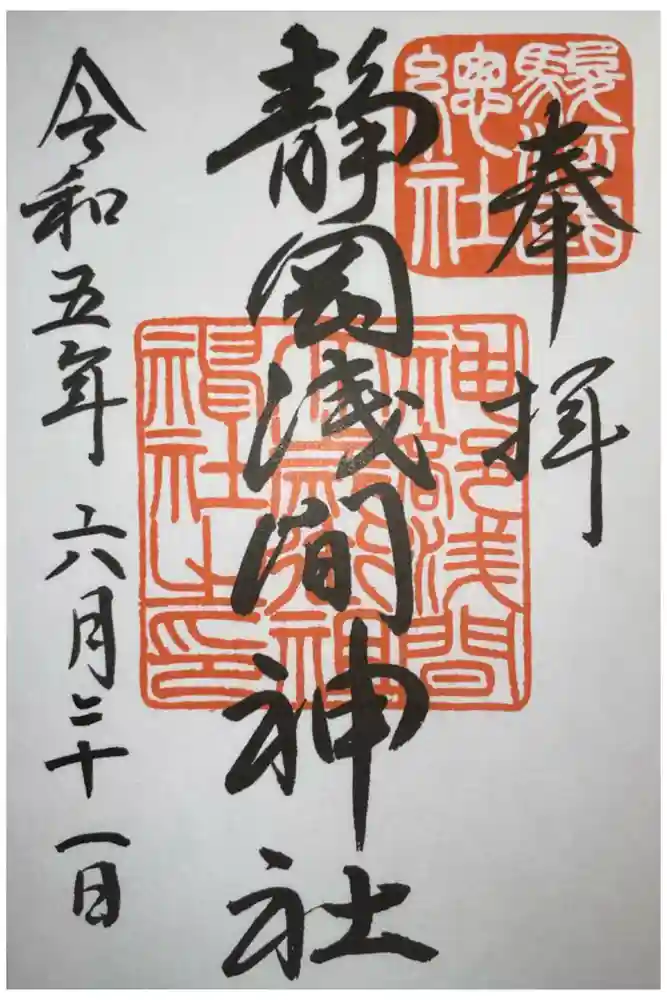 奉拝
駿河國
總社
静岡浅間神社
神部浅間
社之印
令和五年六月二十一日